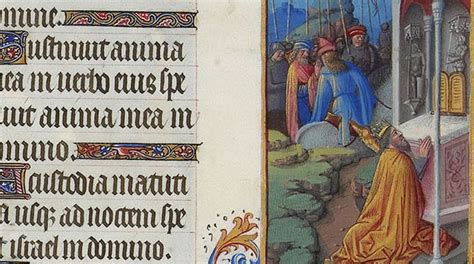 omine.
Sustinuit anima
ea in verbo eius spe
uit anima mea in
omino.
A custodia matuti
a usque ad noctem spe
et israel in domino.